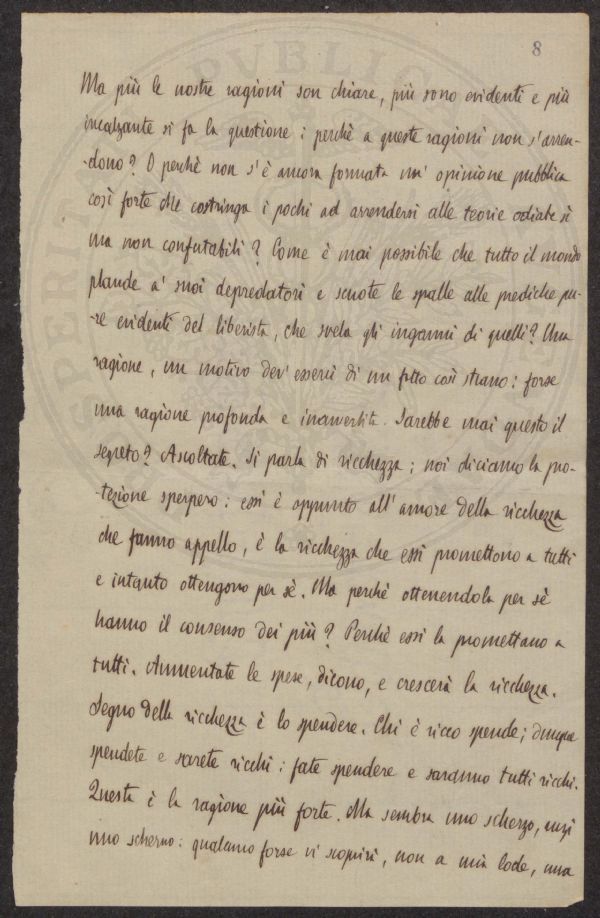 8
Ma più le nostre ragioni son chiare, più sono evidenti e più
incalzante si fa la questione: perchè a queste ragioni non s'arren-
-dono? O perchè non s'è ancora formata un' opinione pubblica
così forte che costringa i pochi ad arrendersi alle teorie odiate sì
ma non confutabili? Come è mai possibile che tutto il mondo
plaude a' suoi depredatori e scuote le spalle alle prediche pu-
-re evidenti del liberista, che svela gli inganni di quelli? Una
ragione, un motivo dev' esservi di un fatto così strano: forse
una ragione profonda e inavvertita. Sarebbe mai questo il
segreto? Ascoltate. Si parla di ricchezza; noi diciamo la pro-
-tezione sperpero: essi è appunto all' amore della ricchezza
che fanno appello, è la ricchezza che essi promettono a tutti
e intanto ottengono per sè. Ma perchè ottenendola per sè
hanno il consenso dei più? Perchè essi la promettano a
tutti. Aumentate le spese, dicono, e crescerà la ricchezza.
Segno della ricchezza è lo spendere. Chi è ricco spende; dunque
spendete e sarete ricchi: fate spendere e saranno tutti ricchi.
Questa è la ragione più forte. Ma sembra uno scherzo, anzi
uno scherno: qualcuno forse vi scoprirà, non a mia lode, una
PVBLICA